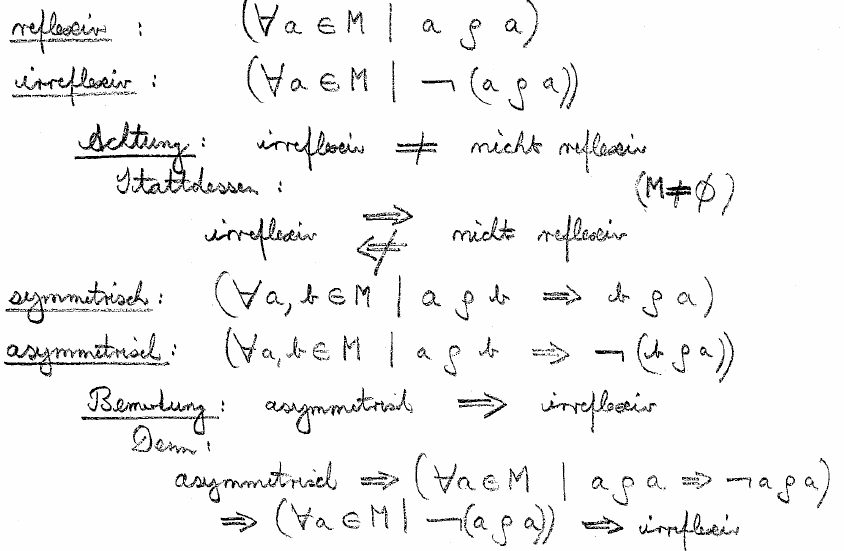 reflexiv : (∀a ∈ M | a ρ a)
irreflexiv : (∀a ∈ M | ¬(a ρ a))
Achtung : irreflexiv ≠ nicht reflexiv
Stattdessen : (M ≠ ∅)
irreflexiv ⇒ nicht reflexiv
⇍
symmetrisch : (∀a, b ∈ M | a ρ b ⇒ b ρ a)
asymmetrisch : (∀a, b ∈ M | a ρ b ⇒ ¬(b ρ a))
Bemerkung : asymmetrisch ⇒ irreflexiv
Denn :
asymmetrisch ⇒ (∀a ∈ M | a ρ a ⇒ ¬a ρ a)
⇒ (∀a ∈ M | ¬(a ρ a)) ⇒ irreflexiv